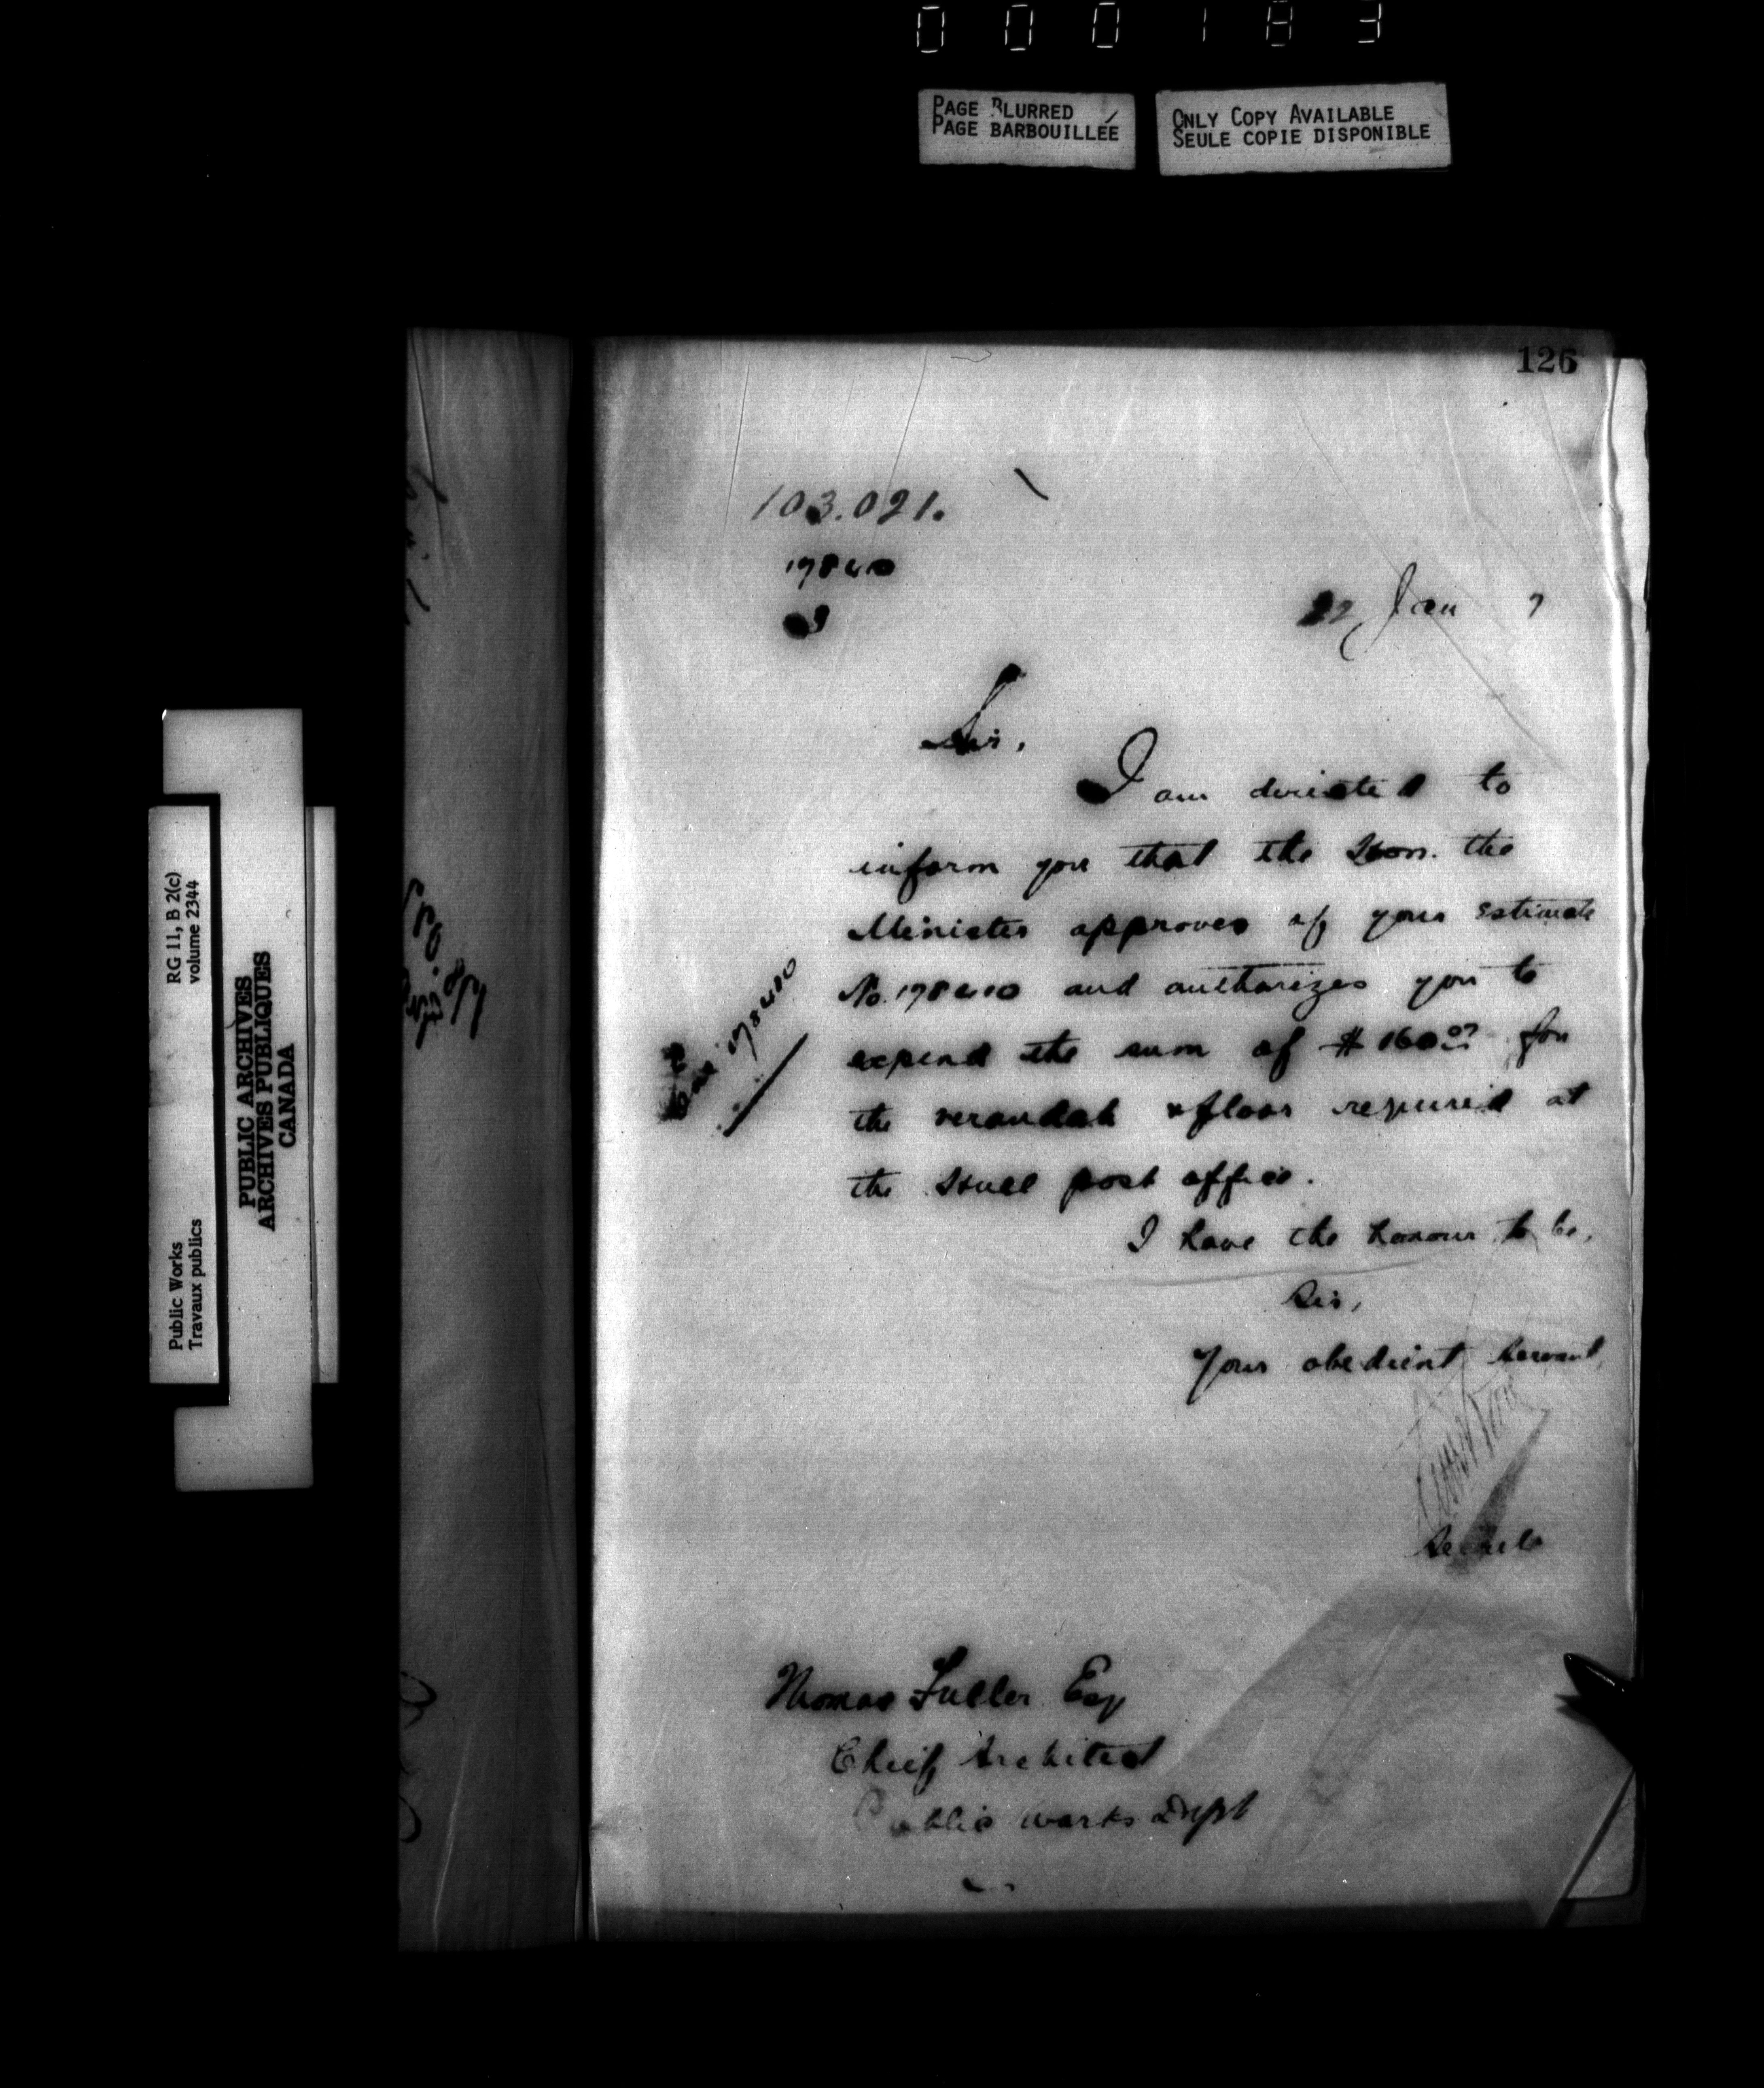 000183
PAGE BLURRED
PAGE BARBOUILLÉE
ONLY COPY AVAILABLE
SEULE COPIE DISPONIBLE
126
103.021.
178410
22 Jan 7
Sir,
I am directed to
inform you that the Hon. the
Minister approves of your Estimate
No. 178410 and authorizes you to
expend the sum of $160.00 for
the verandah floor required at
the Hull post office.
I have the honour to be,
Sir,
Your obedient Servant
Thomas Fuller Esq
Chief Architect
Public Works Dept
178410
RG 11, B 2(c)
volume 2344
Public Works
Travaux publics
PUBLIC ARCHIVES
ARCHIVES PUBLIQUES
CANADA